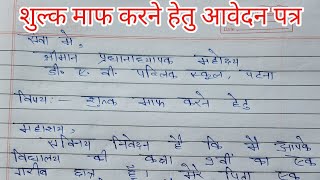 शुल्क माफ करने हेतु आवेदन पत्र
सेवा में,
श्रीमान प्रधानाध्यापक महोदय
डी. ए. वी. पब्लिक स्कूल, पटना
विषय:- शुल्क माफ करने हेतु
महाशय,
सविनय निवेदन है कि मैं आपके
विद्यालय की कक्षा का एक
गरीब छात्र हूँ। मेरे पिता एक